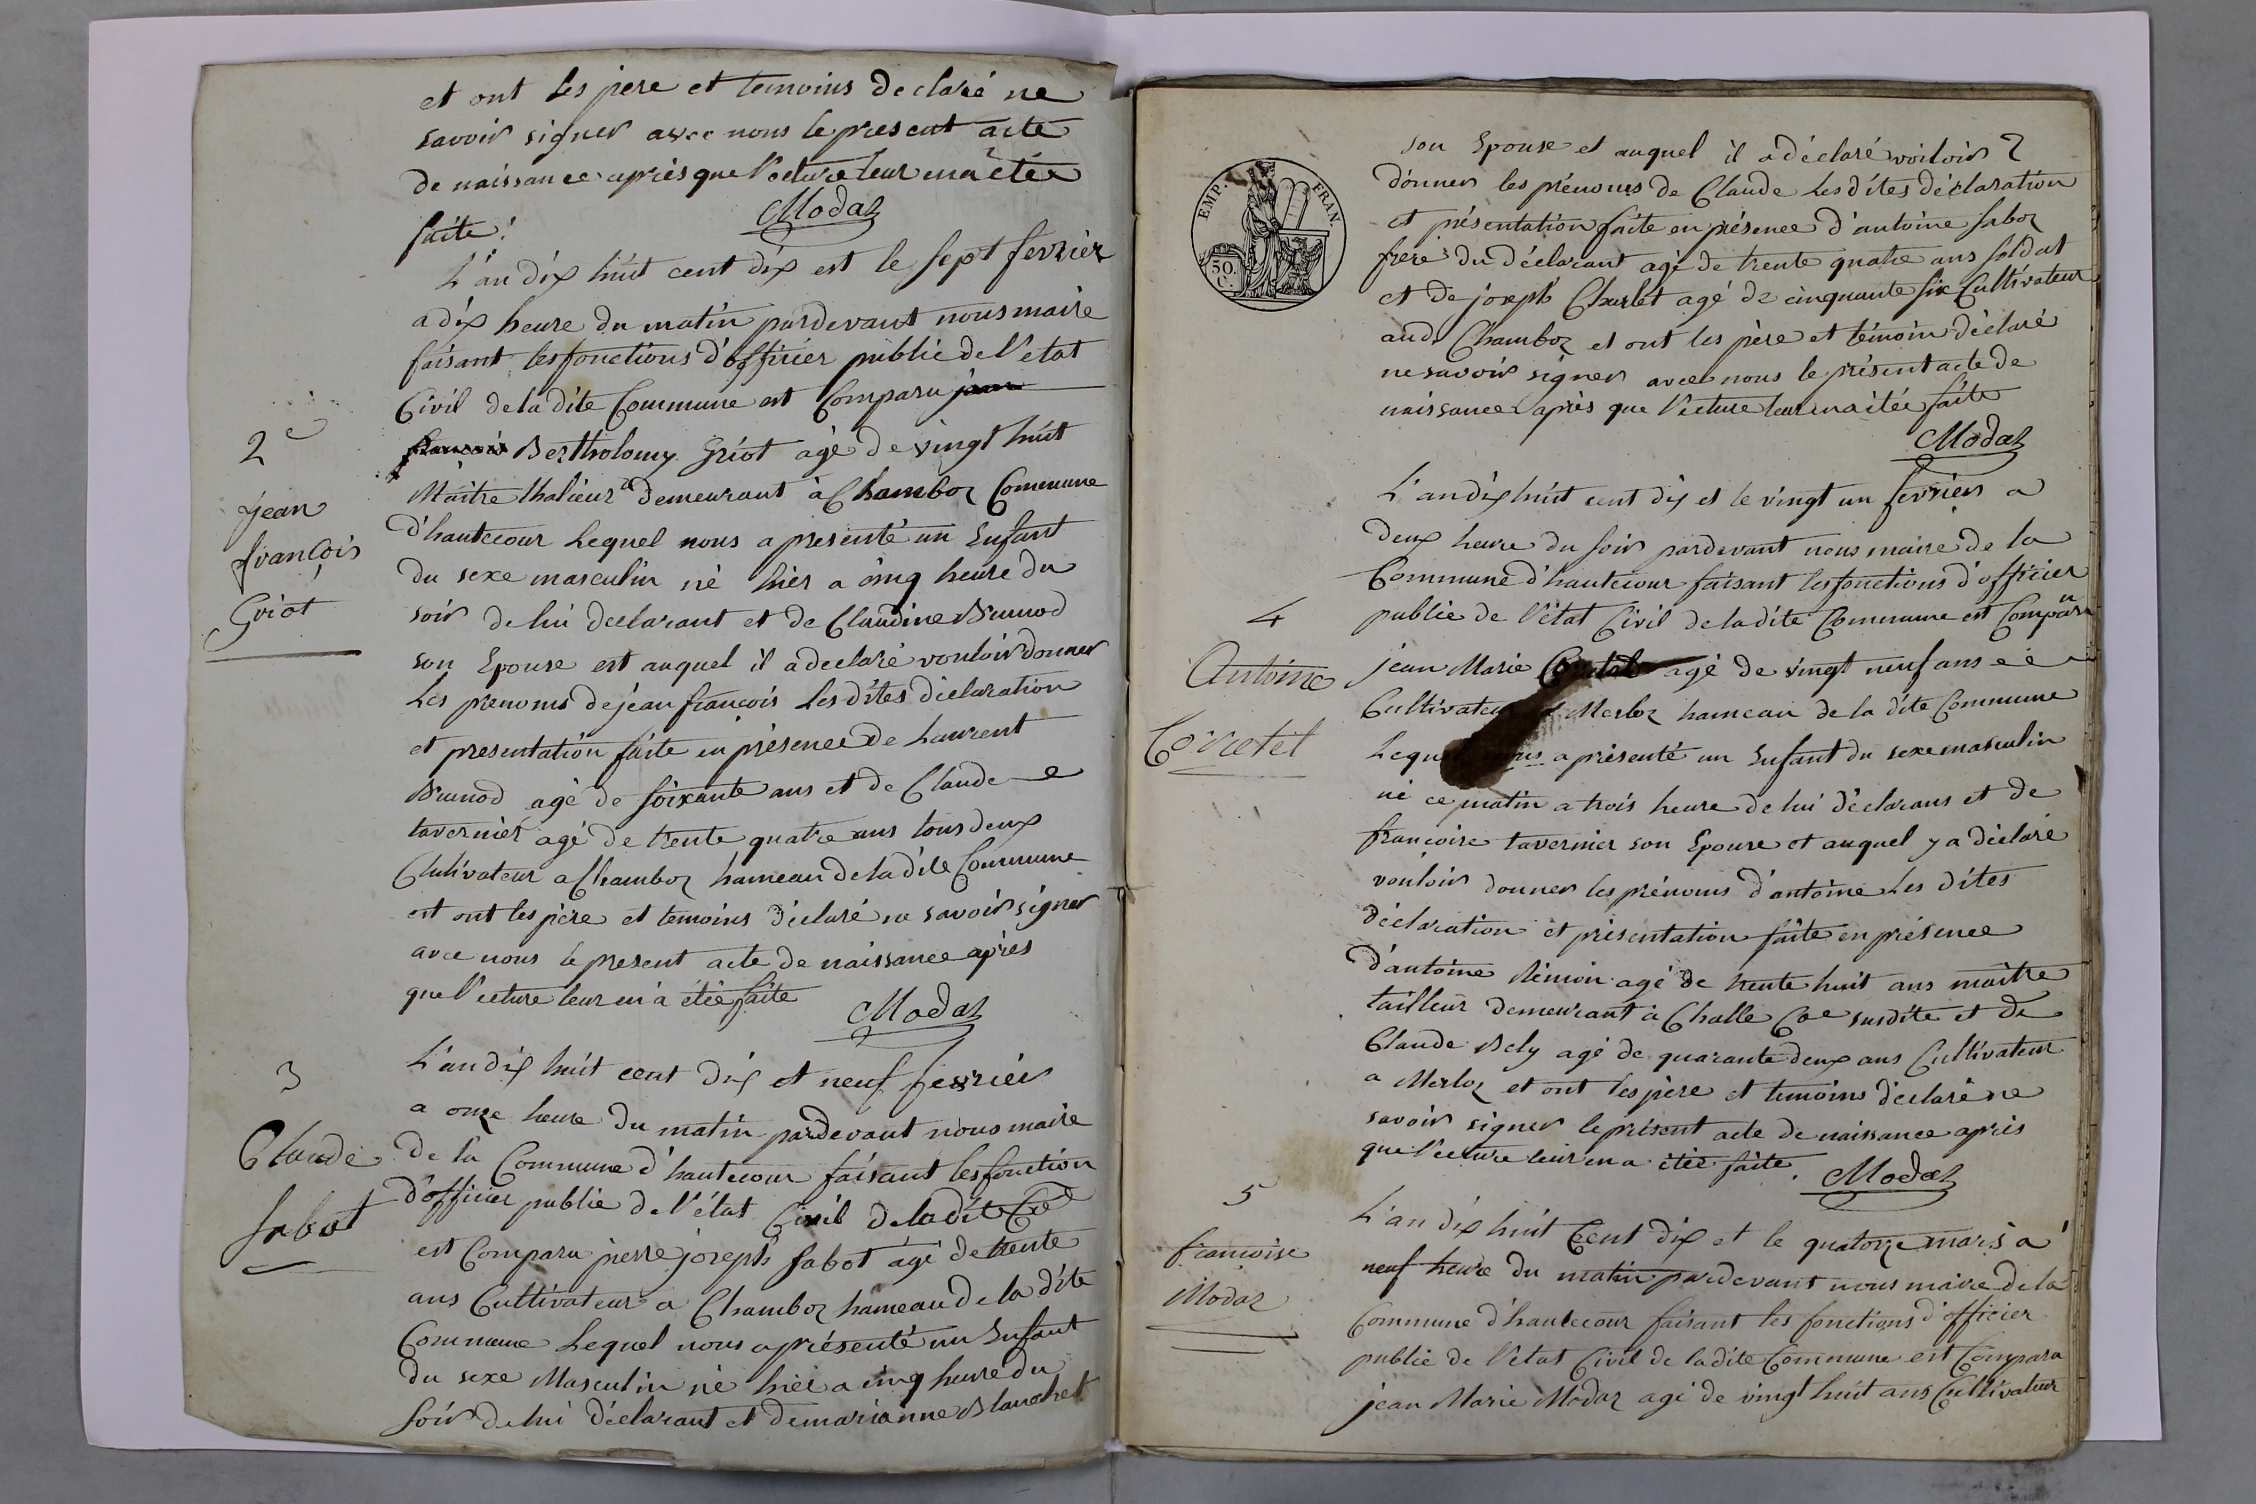 et ont les pere et temoins declaré ne
savoir signer avec nous le present acte
de naissance après que l'ecture leur en a étée
faite.
Modaz
L'an dix huit cent dix est le sept fevrier
a dix heure du matin pardevant nous maire
faisant les fonctions d'officier public de l'etat
Civil de la dite Commune est Comparu jean
françois Bertholomy Griot agé de vingt huit
Maitre demeurant à Chamboz Commune
d'hautecour Lequel nous a presenté un Enfant
du sexe masculin né hier a cinq heure du
soir de lui declarant et de Claudine Brunod
son Epouse est auquel il a declaré vouloir donner
Les prenoms de jean françois Les dites déclaration
et presentation faite en présence de Laurent
Brunod agé de soixante ans et de Claude
tavernier agé de trente quatre ans tous deux
Clutivateur a Chamboz hameau de la dite Commune
est ont les père et temoins déclaré ne savoir signer
avec nous le present acte de naissance après
que l'ecture leur en a étée faite
Modaz
2e
Jean
françois
Griot
L'an dix huit cent dix et neuf fevrier
a onze heure du matin pardevant nous maire
de la Commune d'hautecour faisant les fonction
d'officier public de l'état Civil de la dite Cne
est Comparu pierre joseph Sabot âgé de trente
ans Cultivateur a Chamboz hameau de la dite
Commune Lequel nous a présenté un Enfant
du sexe Masculin né hier a cinq heure du
soir de lui déclarant et de marianne Blanchet
3
Claude
Sabot
EMP. FRAN.
50.
C.
son Epouse et auquel il a déclaré voiloir
donner les prénoms de Claude Les dites déclaration
et présentation faite en présence d'antoine Saboz
frere du déclarant agé de trente quatre ans soldat
et de joseph Charlet agé de cinquante six Cultivateur
aud. Chamboz et ont les père et témoin déclaré
ne savoir signer avec nous le présent acte de
naissance après que l'ecture leur en a étée faite
Modaz
L'an dix huit cent dix et le vingt un fevrier a
deux heure du soir pardevant nous maire de la
Commune d'hautecour faisant les fonctions d'officier
public de l'état Civil de la dite Commune est Comparu
jean Marie agé de vingt neuf ans
Cultivateur Merloz hameau de la dite Commune
Lequel nous a présenté un Enfant du sexe masculin
né ce matin a trois heure de lui déclarans et de
françoise tavernier son Epouse et auquel y a déclaré
vouloir donner les prénoms d'antoine Les dites
déclaration et présentation faite en présence
d'antoine Simon agé de trente huit ans maitre
tailleur demeurant à Challe Cne susdite et de
Claude Bely agé de quarante deux ans Cultivateur
a Merloz et ont les père et temoins déclaré ne
savoir signer le présent acte de naissance après
que l'ecture leur en a étée faite.
Modaz
4
Antoine
Covretel
L'an dix huit Cent dix et le quatorze mars à
neuf heure du matin pardevant nous maire de la
Commune d'hautecour faisant les fonctions d'officier
public de l'etat Civil de ladite Commune est Compara
jean Marie Modaz agé de vingt huit ans Cultivateur
5
françoise
Modaz